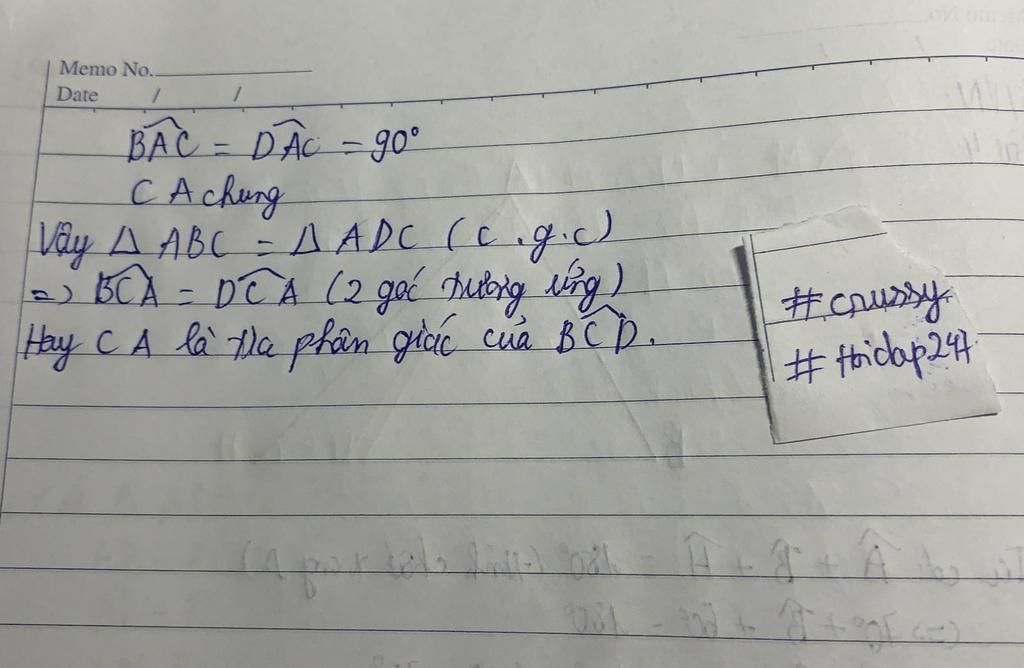 Memo No.
Date / /
BAC = DAC = 90°
CA chung
Vậy Δ ABC = Δ ADC (c.g.c)
=> BCA = DCA (2 góc tương ứng)
Hay CA là tia phân giác của BCD.
#crussy
#hoidap247